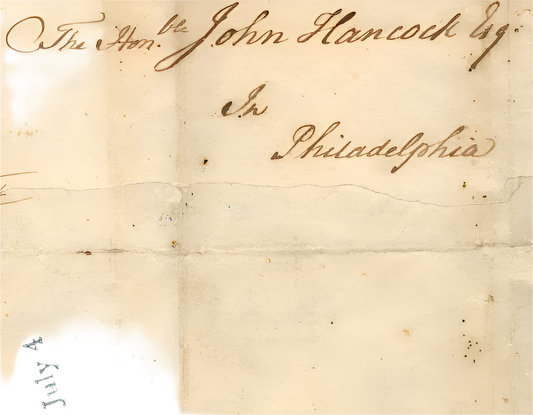 The Hon.ble John Hancock Esq.
In
Philadelphia
July 4